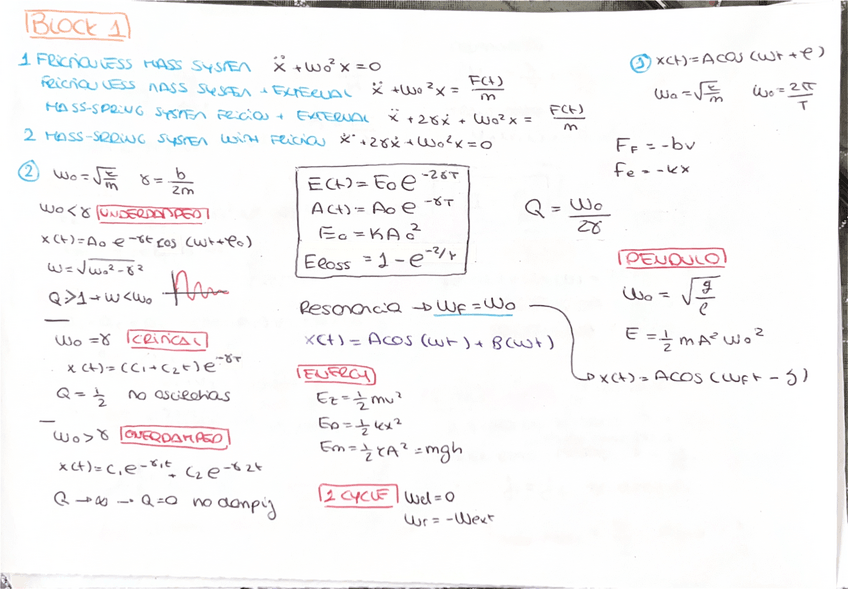 BLOCK 1
1 FRICTIONLESS MASS SYSTEM ẍ + ω₀²x = 0
FRICTIONLESS MASS SYSTEM + EXTERNAL ẍ + ω₀²x = F(t)/m
MASS-SPRING SYSTEM FRICTION + EXTERNAL ẍ + 2γẋ + ω₀²x = F(t)/m
2 MASS-SPRING SYSTEM WITH FRICTION ẍ + 2γẋ + ω₀²x = 0
① x(t) = A cos (ωt + φ)
ω₀ = √(k/m) ω₀ = 2π/T
F_F = -bv
Fe = -kx
② ω₀ = √(k/m) γ = b/2m
ω₀ < γ UNDERDAMPED
x(t) = A₀ e^(-γt) cos (ωt + φ₀)
ω = √(ω₀² - γ²)
Q ≫ 1 → ω < ω₀
ω₀ = γ CRITICAL
x(t) = (C₁ + C₂t) e^(-γt)
Q = 1/2 no oscilations
ω₀ > γ OVERDAMPED
x(t) = C₁e^(-γ₁t) + C₂e^(-γ₂t)
Q → ∞ → Q = 0 no damping
E(t) = E₀ e^(-2γt)
A(t) = A₀ e^(-γt)
E₀ = KA₀²
Eloss = 1 - e^(-2/τ)
Q = ω₀/2γ
Resonancia → ω_F = ω₀
x(t) = A cos (ωt) + B(ωt)
x(t) = A cos (ω_F t - δ)
ENERGY
E_z = 1/2 mv²
Ep = 1/2 kx²
Em = 1/2 kA² = mgh
1 CYCLE Wel = 0
Wr = -Wext
PENDULO
ω₀ = √(g/l)
E = 1/2 mA²ω₀²